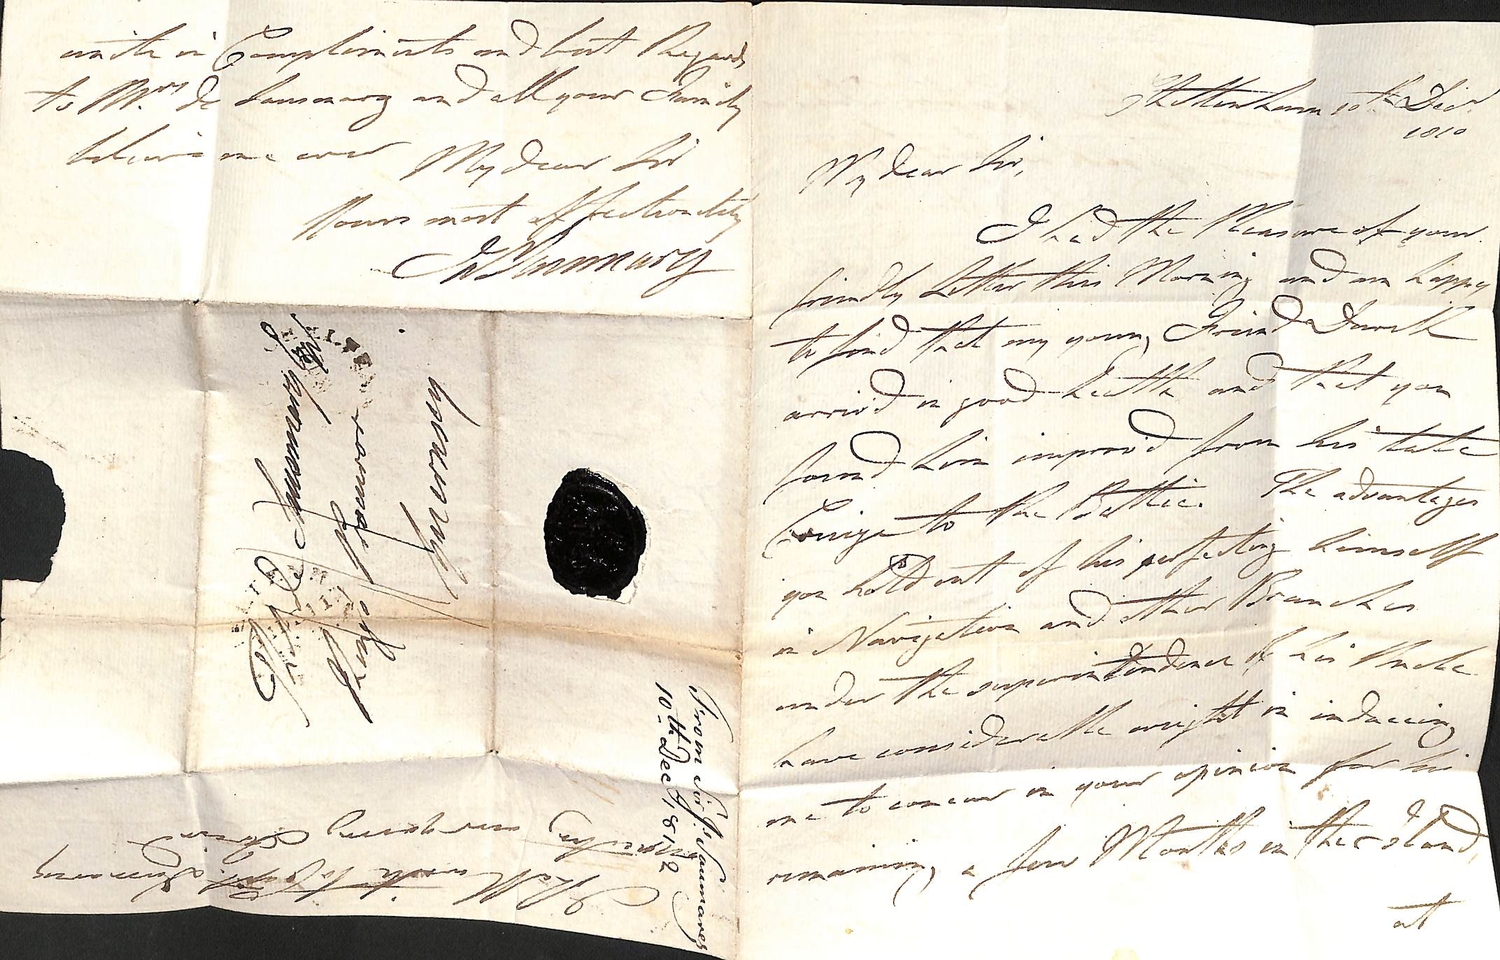 Cheltenham 10th Decr.
1810
My dear Sir,
I had the Pleasure of your
friendly Letter this Morning and am happy
to find that my young Friend Durell
arriv'd in good health and that you
found him improv'd from his late
Cruize to the Baltic. The advantages
you hold out of his perfecting himself
in Navigation and other Branches
under the superintendence of his Uncle
have considerable weight in inducing
me to concur in your opinion for his
remaining a few Months in the Island,
at
unite in Compliments and best Regards
to Mrs. de Sausmarez and all your Family
believe me ever My dear Sir
Yours most affectionately
Js Saumarez
Thos. de Sausmarez Esqr
Guernsey
From Sir Js. Saumarez
10th Decr. 1812